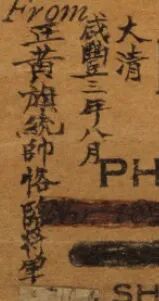 From
大清
咸豐三年八月
正黃旗統帥恪臨將軍
PH
SH